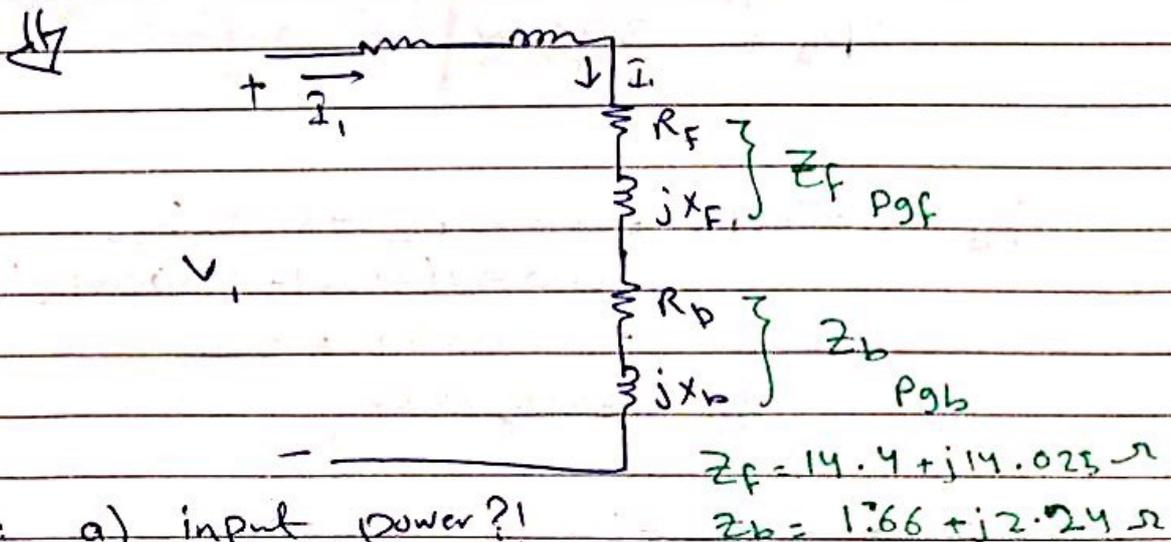 + I₁ I₁
R_F
Z_f
jX_F,
Pgf
V₁
R_b
Z_b
jX_b
Pgb
-
Z_f = 14.4 + j14.025 Ω
a) input power?! Z_b = 1.66 + j2.24 Ω